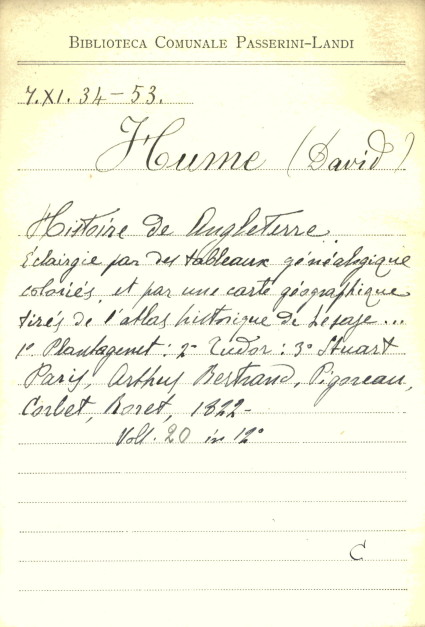 BIBLIOTECA COMUNALE PASSERINI-LANDI
7.XI.34-53.
Hume (David)
Histoire de Angleterre.
Éclairgie par des tableaux généalogique
coloriés, et par une carte géographique
tirés de l'atlas historique de Lesage...
1º Plantagenet: 2º Tudor: 3º Stuart
Paris, Arthus Bertrand, Pigoreau,
Corbet, Roret, 1822-
Voll. 20 in 12º
C